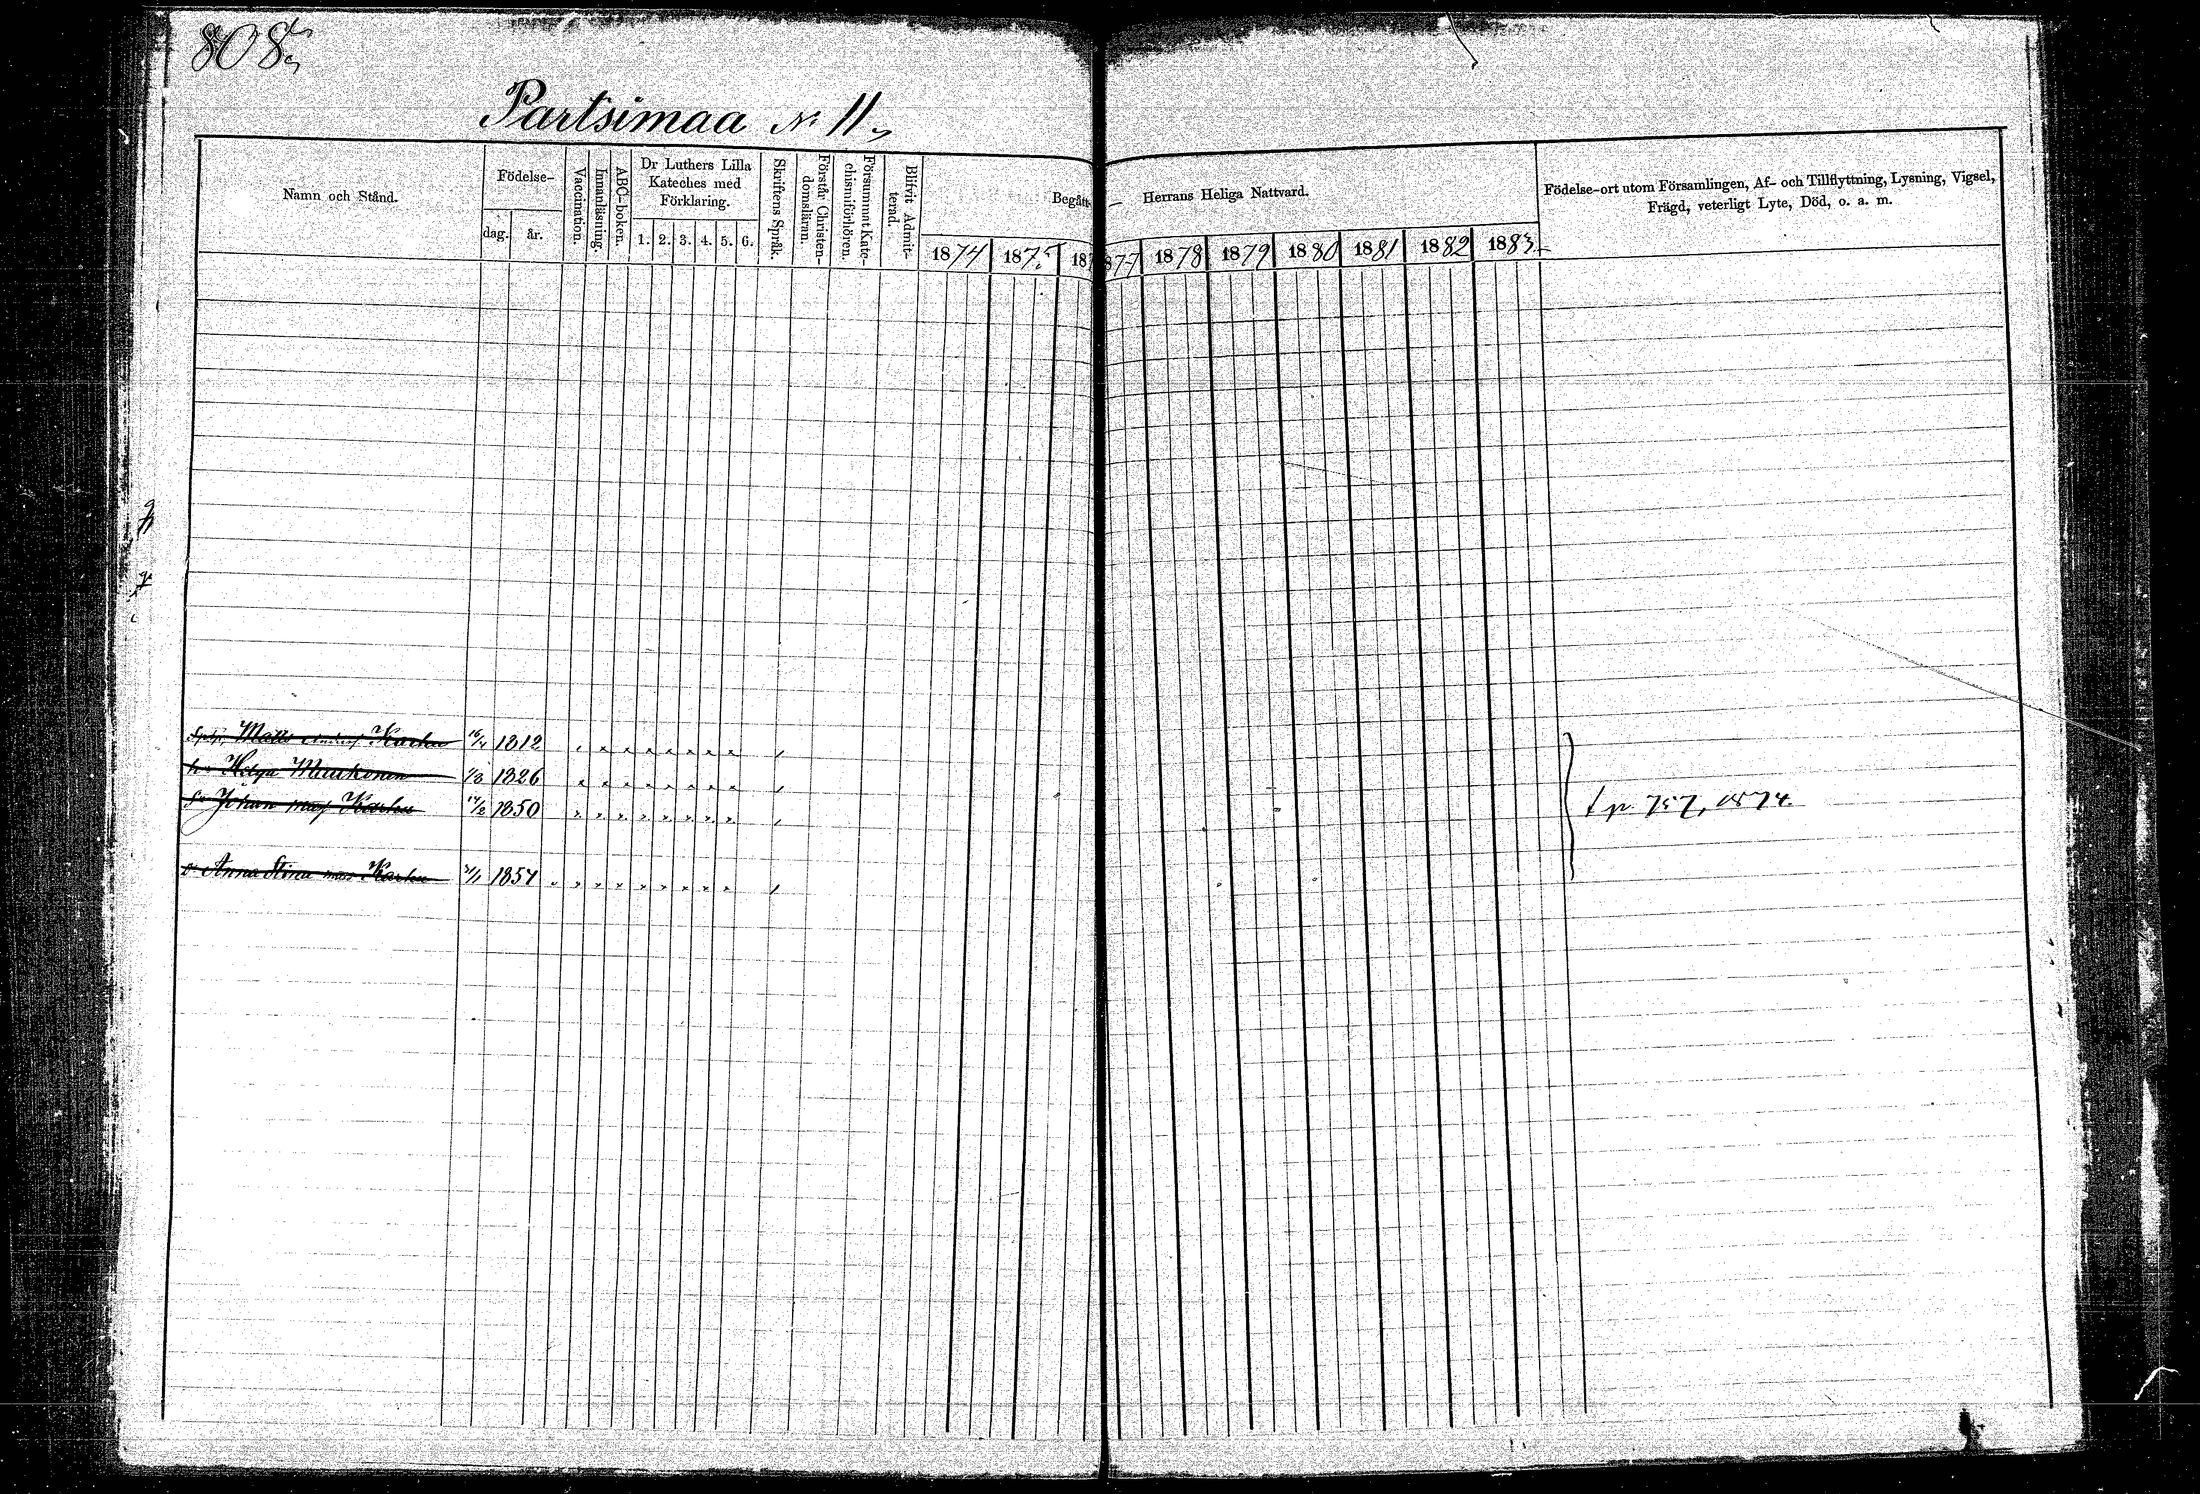 808
Partsimaa No 11
Namn och Stånd.
Födelse-
dag.
år.
Vaccination.
Innanläsning.
ABC-boken.
Dr Luthers Lilla
Kateches med
Förklaring.
1. 2. 3. 4. 5. 6.
Skriftens Språk.
Förstår Christen-
domsläran.
Försummat Kate-
chismiförhören.
Blifvit Admit-
terad.
Begått
Herrans Heliga Nattvard.
1874 1875 187 877 1878 1879 1880 1881 1882 1883
Födelse-ort utom Församlingen, Af- och Tillflyttning, Lysning, Vigsel,
Frägd, veterligt Lyte, Död, o. a. m.
Matts Karhu 16/4 1812
h. Helga Muukonen 1/3 1826
S. Johan Karhu 14/2 1850
p. 757, 1874.
D. Anna Stina Karhu 1854